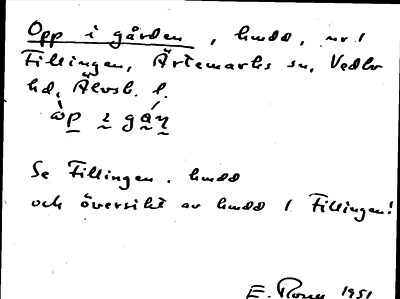 Opp i gården, hmdd, nr 1
Fillingen, Ärtemarks sn, Vedbo
hd, Älvsb. l.
òp ɩ gáṇ
Se Fillingen, hmdd
och översikt av hmdd / Fillingen!
E. Rosén 1951